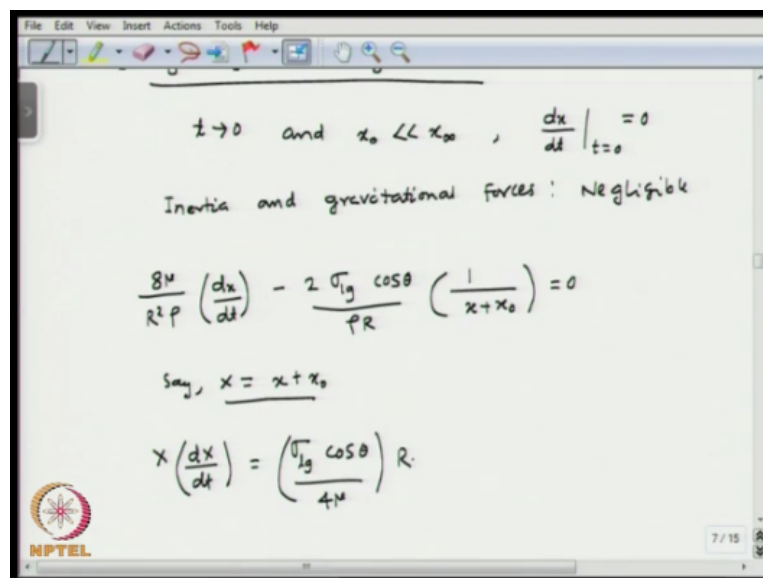 File Edit View Insert Actions Tools Help
t → 0 and x₀ << x∞ , dx/dt |t=0 = 0
Inertia and gravitational forces : Negligible
8μ/R²ρ (dx/dt) - 2 σlg cosθ/ρR (1/x+x₀) = 0
Say, X = x + x₀
X (dX/dt) = (σlg cosθ/4μ) R.
NPTEL
7 / 15